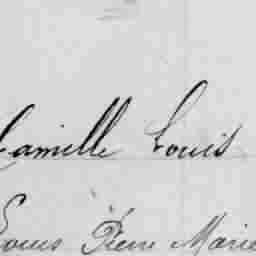 Camille Louis
Louis Pierre Marie